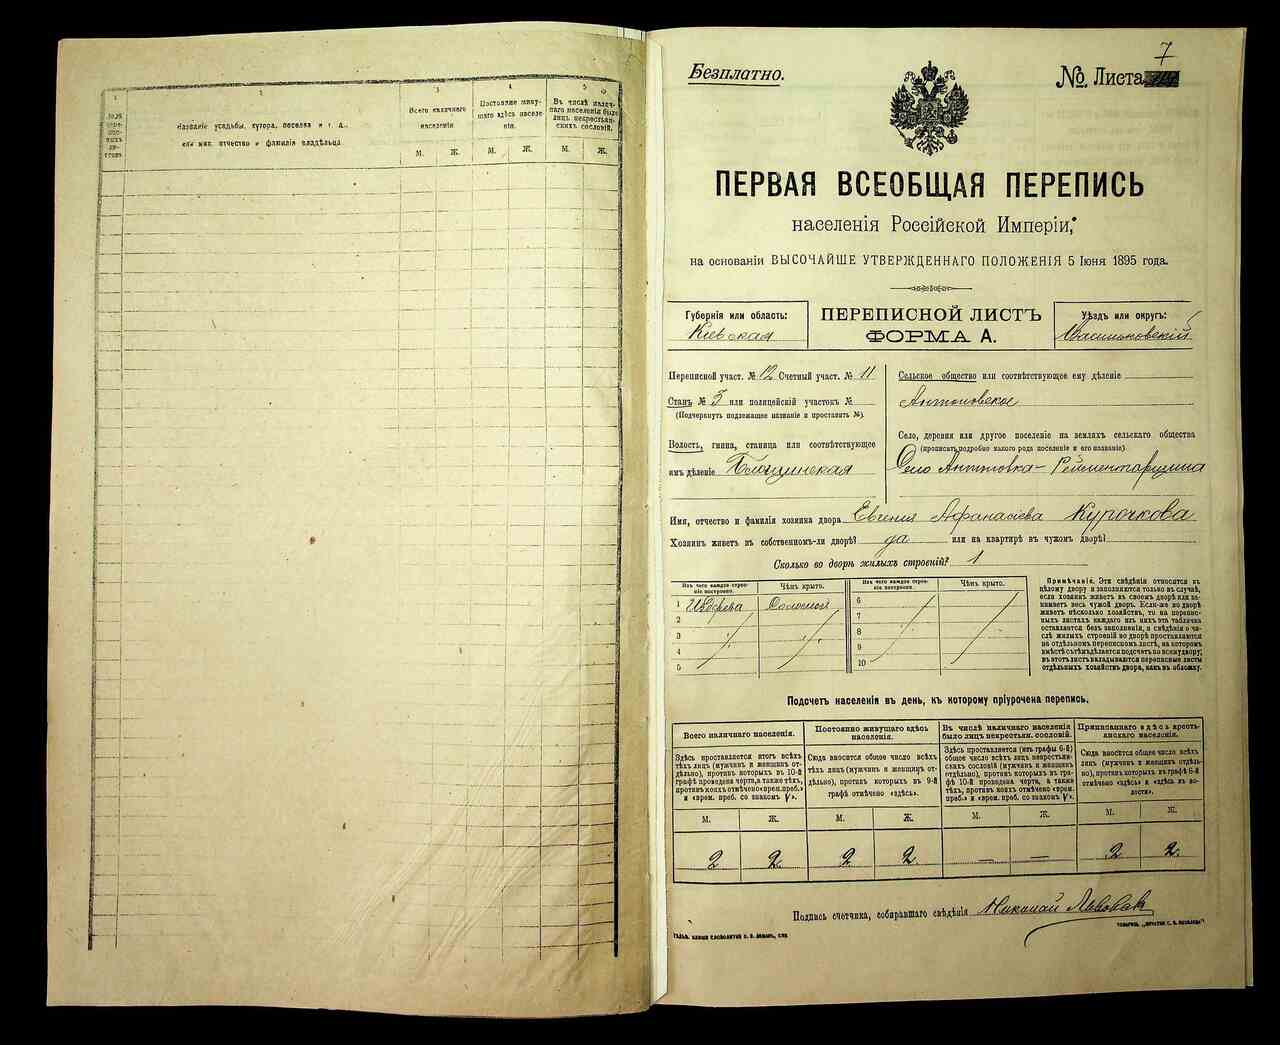 1 2 3 4 5
Названіе усадьбы, хутора, поселка и т. д.,
или имя, отчество и фамилія владѣльца
Всего наличнаго
населенія
Постоянно живу-
щаго здѣсь населе-
нія.
Въ числѣ налич-
наго населенія было
лицъ некрестьян-
скихъ сословій.
М. Ж. М. Ж. М. Ж.
7
Безплатно.
№ Листа
ПЕРВАЯ ВСЕОБЩАЯ ПЕРЕПИСЬ
населенія Россійской Имперіи,
на основаніи ВЫСОЧАЙШЕ УТВЕРЖДЕННАГО ПОЛОЖЕНІЯ 5 Іюня 1895 года.
Губернія или область:
Кіевская
ПЕРЕПИСНОЙ ЛИСТЪ
ФОРМА А.
Уѣздъ или округъ:
Васильковскій
Переписной участ. № 12 Счетный участ. № 11
Станъ № 3 или полицейскій участокъ №
(Подчеркнуть подлежащее названіе и проставить №).
Волость, гмина, станица или соотвѣтствующее
имъ дѣленіе
Сельское общество или соотвѣтствующее ему дѣленіе
Антоновское
Село, деревня или другое поселеніе на земляхъ сельскаго общества
(прописать подробно какого рода поселеніе и его названіе)
Село Антоновка-Рейментарщина
Имя, отчество и фамилія хозяина двора Евгенія Афанасіева Курочкова
Хозяинъ живетъ въ собственномъ-ли дворѣ? да или на квартирѣ въ чужомъ дворѣ?
Сколько во дворѣ жилыхъ строеній? 1
Изъ чего каждое строе-
ніе построено.
Чѣмъ крыто.
1 Изъ дерева Соломой
2
3
4
5
Изъ чего каждое строе-
ніе построено.
Чѣмъ крыто.
6
7
8
9
10
Примѣчаніе. Эти свѣдѣнія относятся къ
цѣлому двору и заполняются только въ случаѣ,
если хозяинъ живетъ въ своемъ дворѣ или за-
нимаетъ весь чужой дворъ. Если-же во дворѣ
живетъ нѣсколько хозяйствъ, то на перепис-
ныхъ листахъ каждаго изъ нихъ эта табличка
оставляется безъ заполненія, а свѣдѣнія о чи-
слѣ жилыхъ строеній во дворѣ проставляются
на отдѣльномъ переписномъ листѣ, на которомъ
вмѣстѣ съ тѣмъ дѣлается подсчетъ по всему двору;
въ этотъ листъ вкладываются переписные листы
отдѣльныхъ хозяйствъ двора, какъ въ обложку.
Подсчетъ населенія въ день, къ которому пріурочена перепись.
Всего наличнаго населенія.
Здѣсь проставляется итогъ всѣхъ
лицъ (мужчинъ и женщинъ от-
дѣльно), противъ которыхъ въ 10-й
графѣ проведена черта, а также тѣхъ,
противъ коихъ отмѣчено «врем. преб.»
и «врем. преб. со знакомъ V».
Постоянно живущаго здѣсь
населенія.
Сюда вносится общее число всѣхъ
тѣхъ лицъ (мужчинъ и женщинъ от-
дѣльно), противъ которыхъ въ 9-й
графѣ отмѣчено «здѣсь».
Въ числѣ наличнаго населенія
было лицъ некрестьян. сословій.
Здѣсь проставляется (изъ графы 6-й)
общее число всѣхъ лицъ некрестьян-
скихъ сословій (мужчинъ и женщинъ
отдѣльно), противъ которыхъ въ гра-
фѣ 10-й проведена черта, а также
тѣхъ, противъ коихъ отмѣчено «врем.
преб.» и «врем. преб. со знакомъ V».
Приписаннаго здѣсь кресть-
янскаго населенія.
Сюда вносится общее число всѣхъ
лицъ (мужчинъ и женщинъ отдѣль-
но), противъ которыхъ въ графѣ 6-й
отмѣчено «здѣсь» и «здѣсь въ во-
лости».
М. Ж. М. Ж. М. Ж. М. Ж.
2 2 2 2 — — 2 2
Подпись счетчика, собиравшаго свѣдѣнія Николай